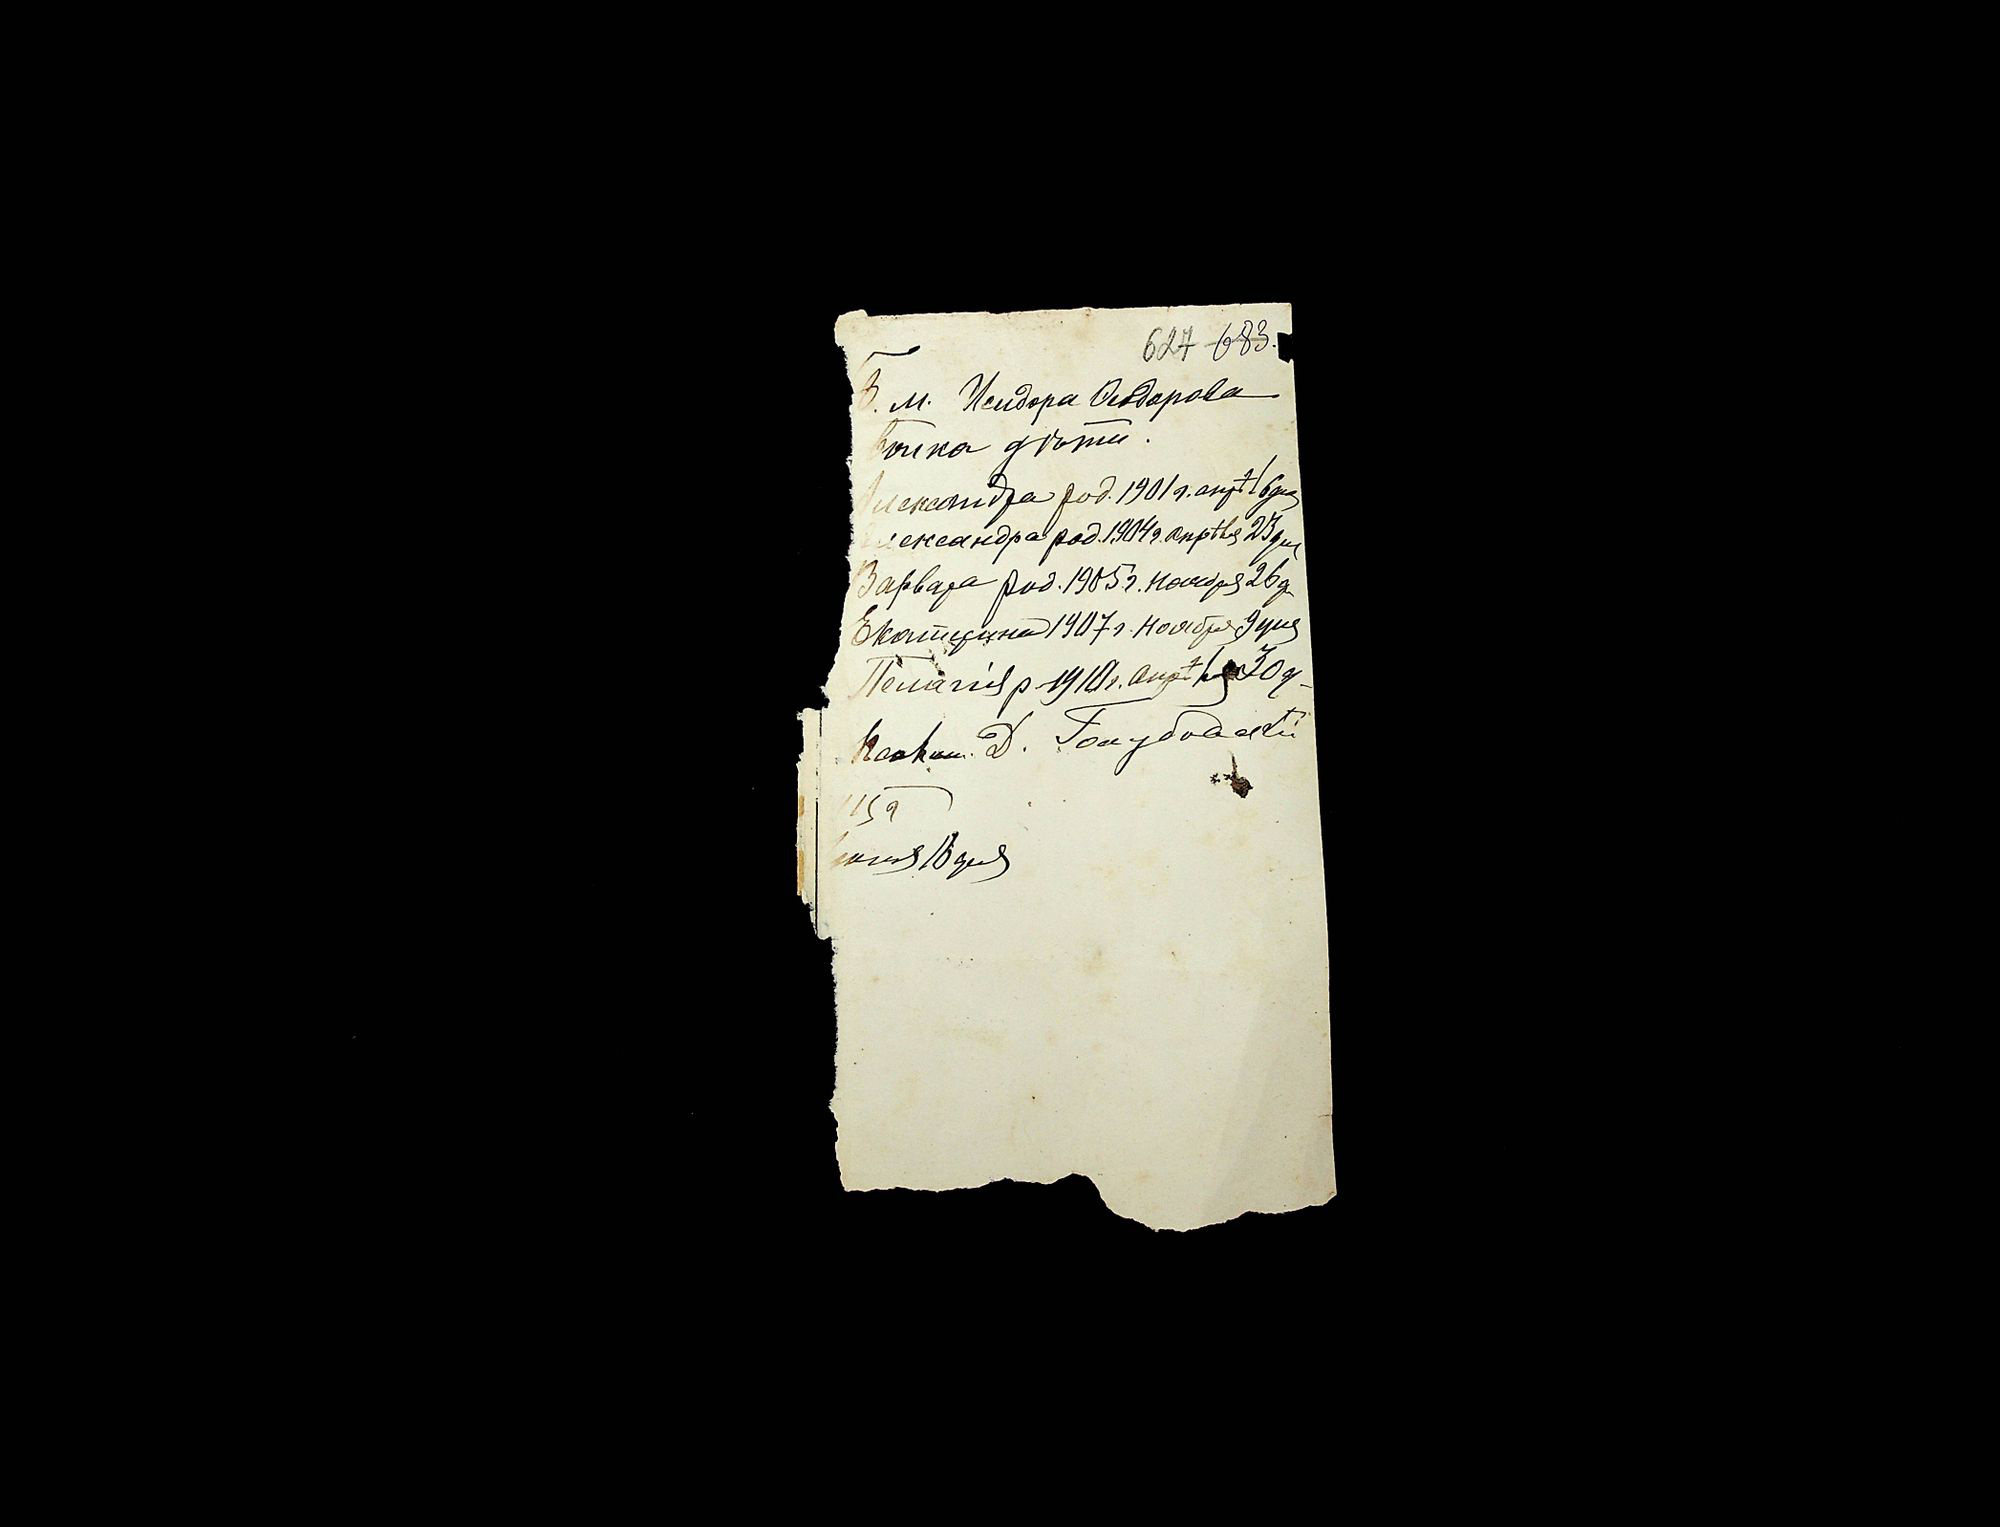 627 683.
Б. м. Исидора Ѳедорова
Волка дѣти.
Александра род. 1901 г. апр. 16 дня
Александра род. 1904 г. апрѣля 23 дня
Варвара род. 1905 г. ноября 26 д.
Екатерина 1907 г. ноября 9 дня
Пелагія р. 1910 г. апрѣля 30 д.
Д. Голубовскій
115 г
18 дня